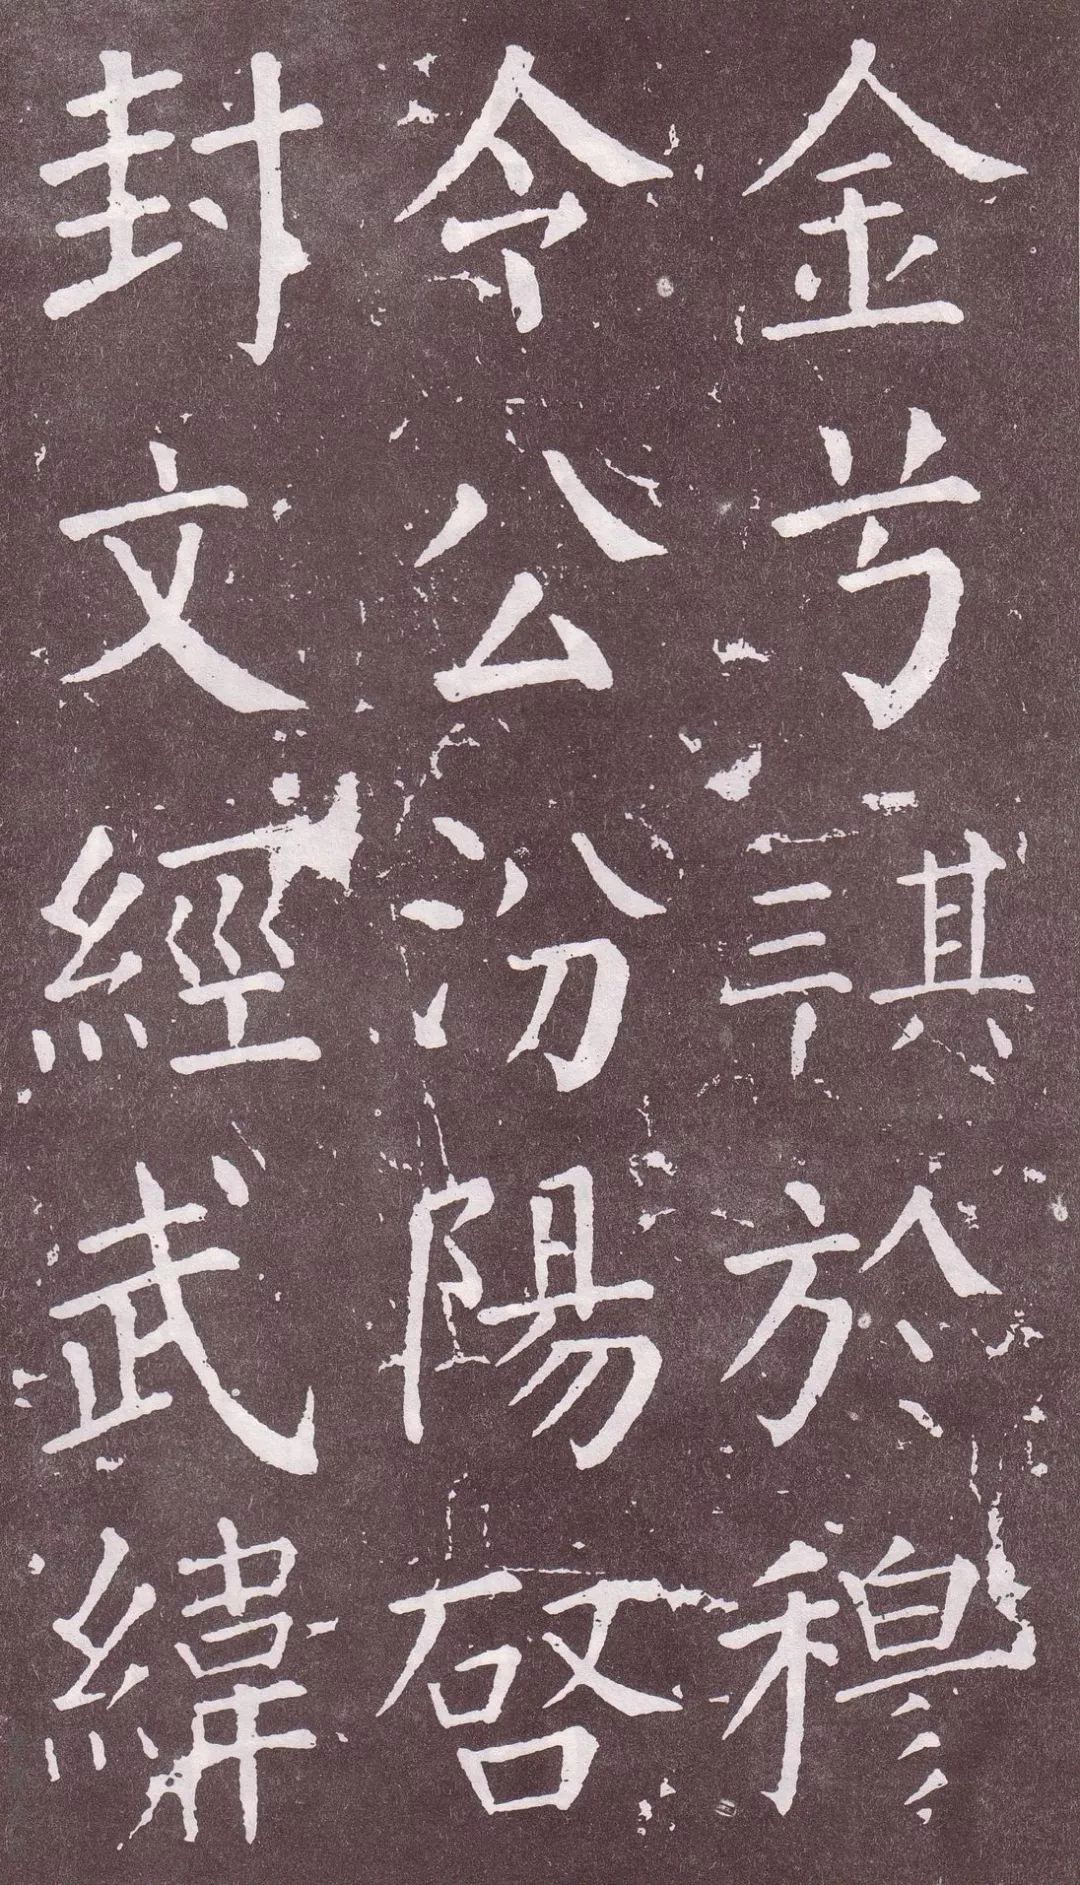 金兮其三於穆
令公汾陽啓
封文經武緯